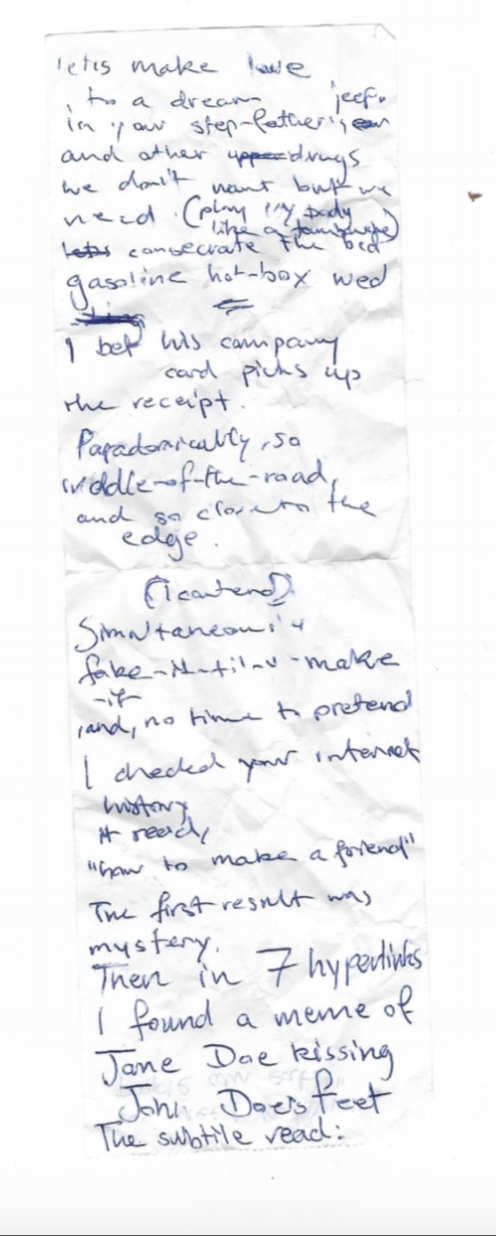 let's make love
, to a dream jeep.
in your step-father's
and other upper drugs
we don't want but we
need. (play my body
like a tambourine)
let's consecrate the bed
gasoline hot-box wed
I bet his company
card picks up
the receipt.
Paradoxically, so
middle-of-the-road,
and so close to the
edge.
(I contend).
Simultaneously
fake-it-til-u-make
-it
and, no time to pretend
I checked your internet
history
it read,
"how to make a friend"
The first result was
mystery.
Then in 7 hyperlinks
I found a meme of
Jane Doe kissing
John Doe's feet
The subtile read: